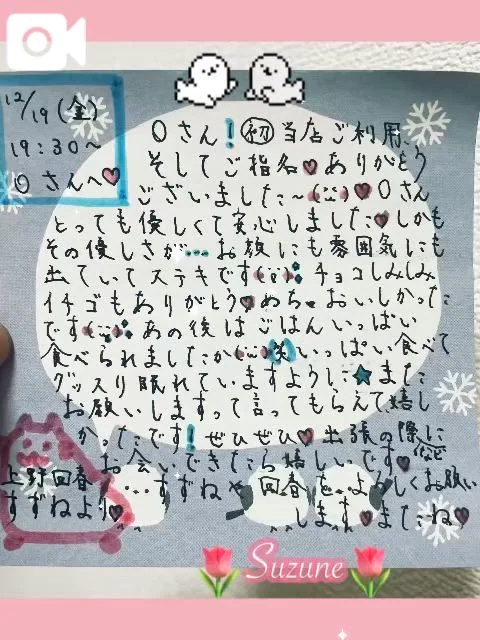 12/19(金)
19:30〜
Oさんへ♥
Oさん!㊗初 当店ご利用、
そしてご指名♥ありがとう
ございました〜♥Oさん
とっても優しくて安心しました♥しかも
その優しさが…お顔にも雰囲気にも
出ていてステキです チョコしみしみ
イチゴもありがとう♥めちゃおいしかった
です あの後はごはんいっぱい
食べられましたか 笑 いっぱい食べて
グッスリ眠れていますように★また
お願いしますって言ってもらえて嬉し
かったです!ぜひぜひ♥出張の際に
など
お会いできたら嬉しいです♥
すずねや回春をよろしくお願い
します♥またね♥
上野回春
すずねより♥
Suzune